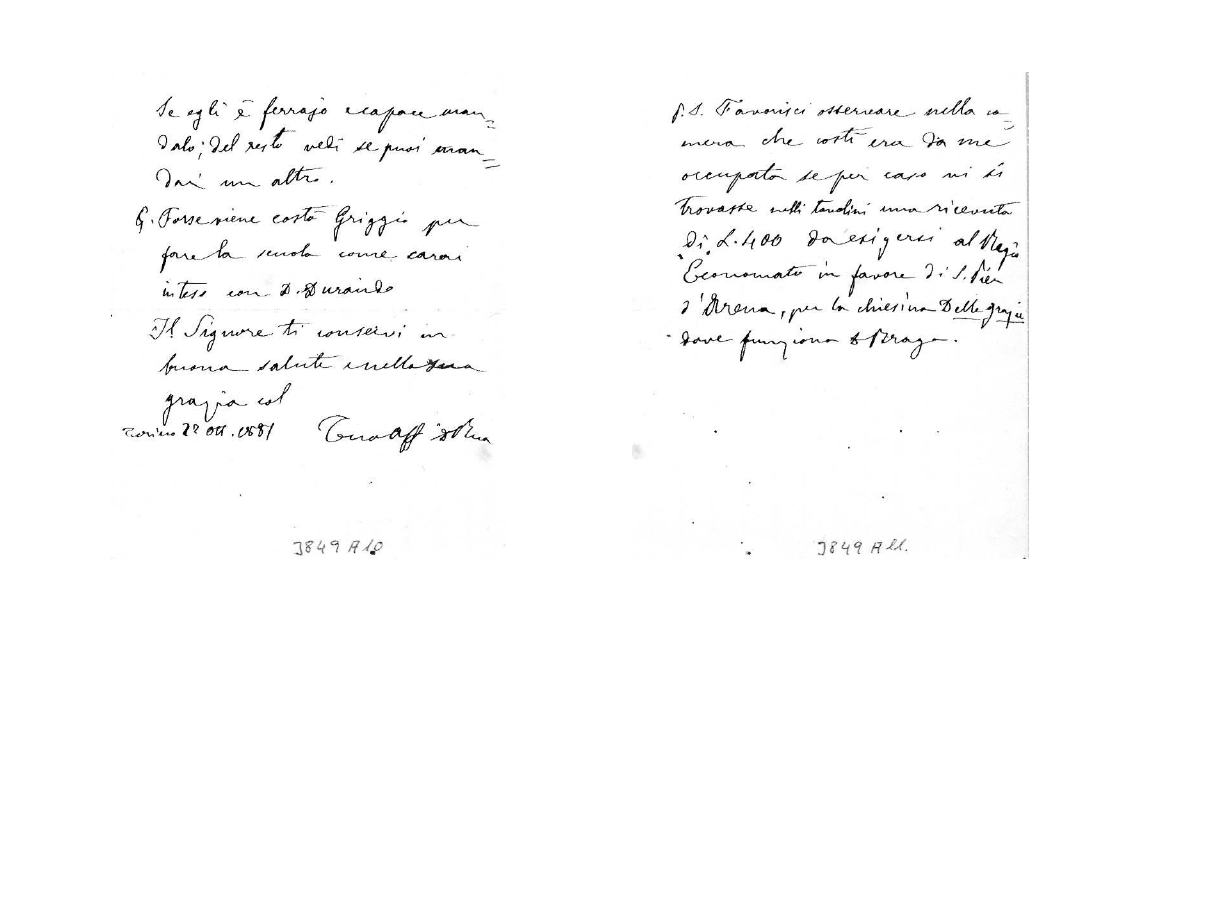 Se egli è ferrajo e capace man=
dalo; del resto vedi se puoi man=
dar un altro.
6. Forse viene costà Griggio per
fare la scuola come carai
inteso con D. Durando
Il Signore ti conservi in
buona salute e nella sua
grazia col
Torino 22 Ott. 1881 Tuo Aff D Rua
J849 A 10
P.S. Favorisci osservare nella ca=
mera che costì era da me
occupata se per caso vi si
trovasse nelli tavolini una ricevuta
di L. 400 da esigersi al Regio
Economato in favore di S. Pier
d'Arena, per la chiesina Delle grazie
dove funziona D Braga.
J849 A 11.